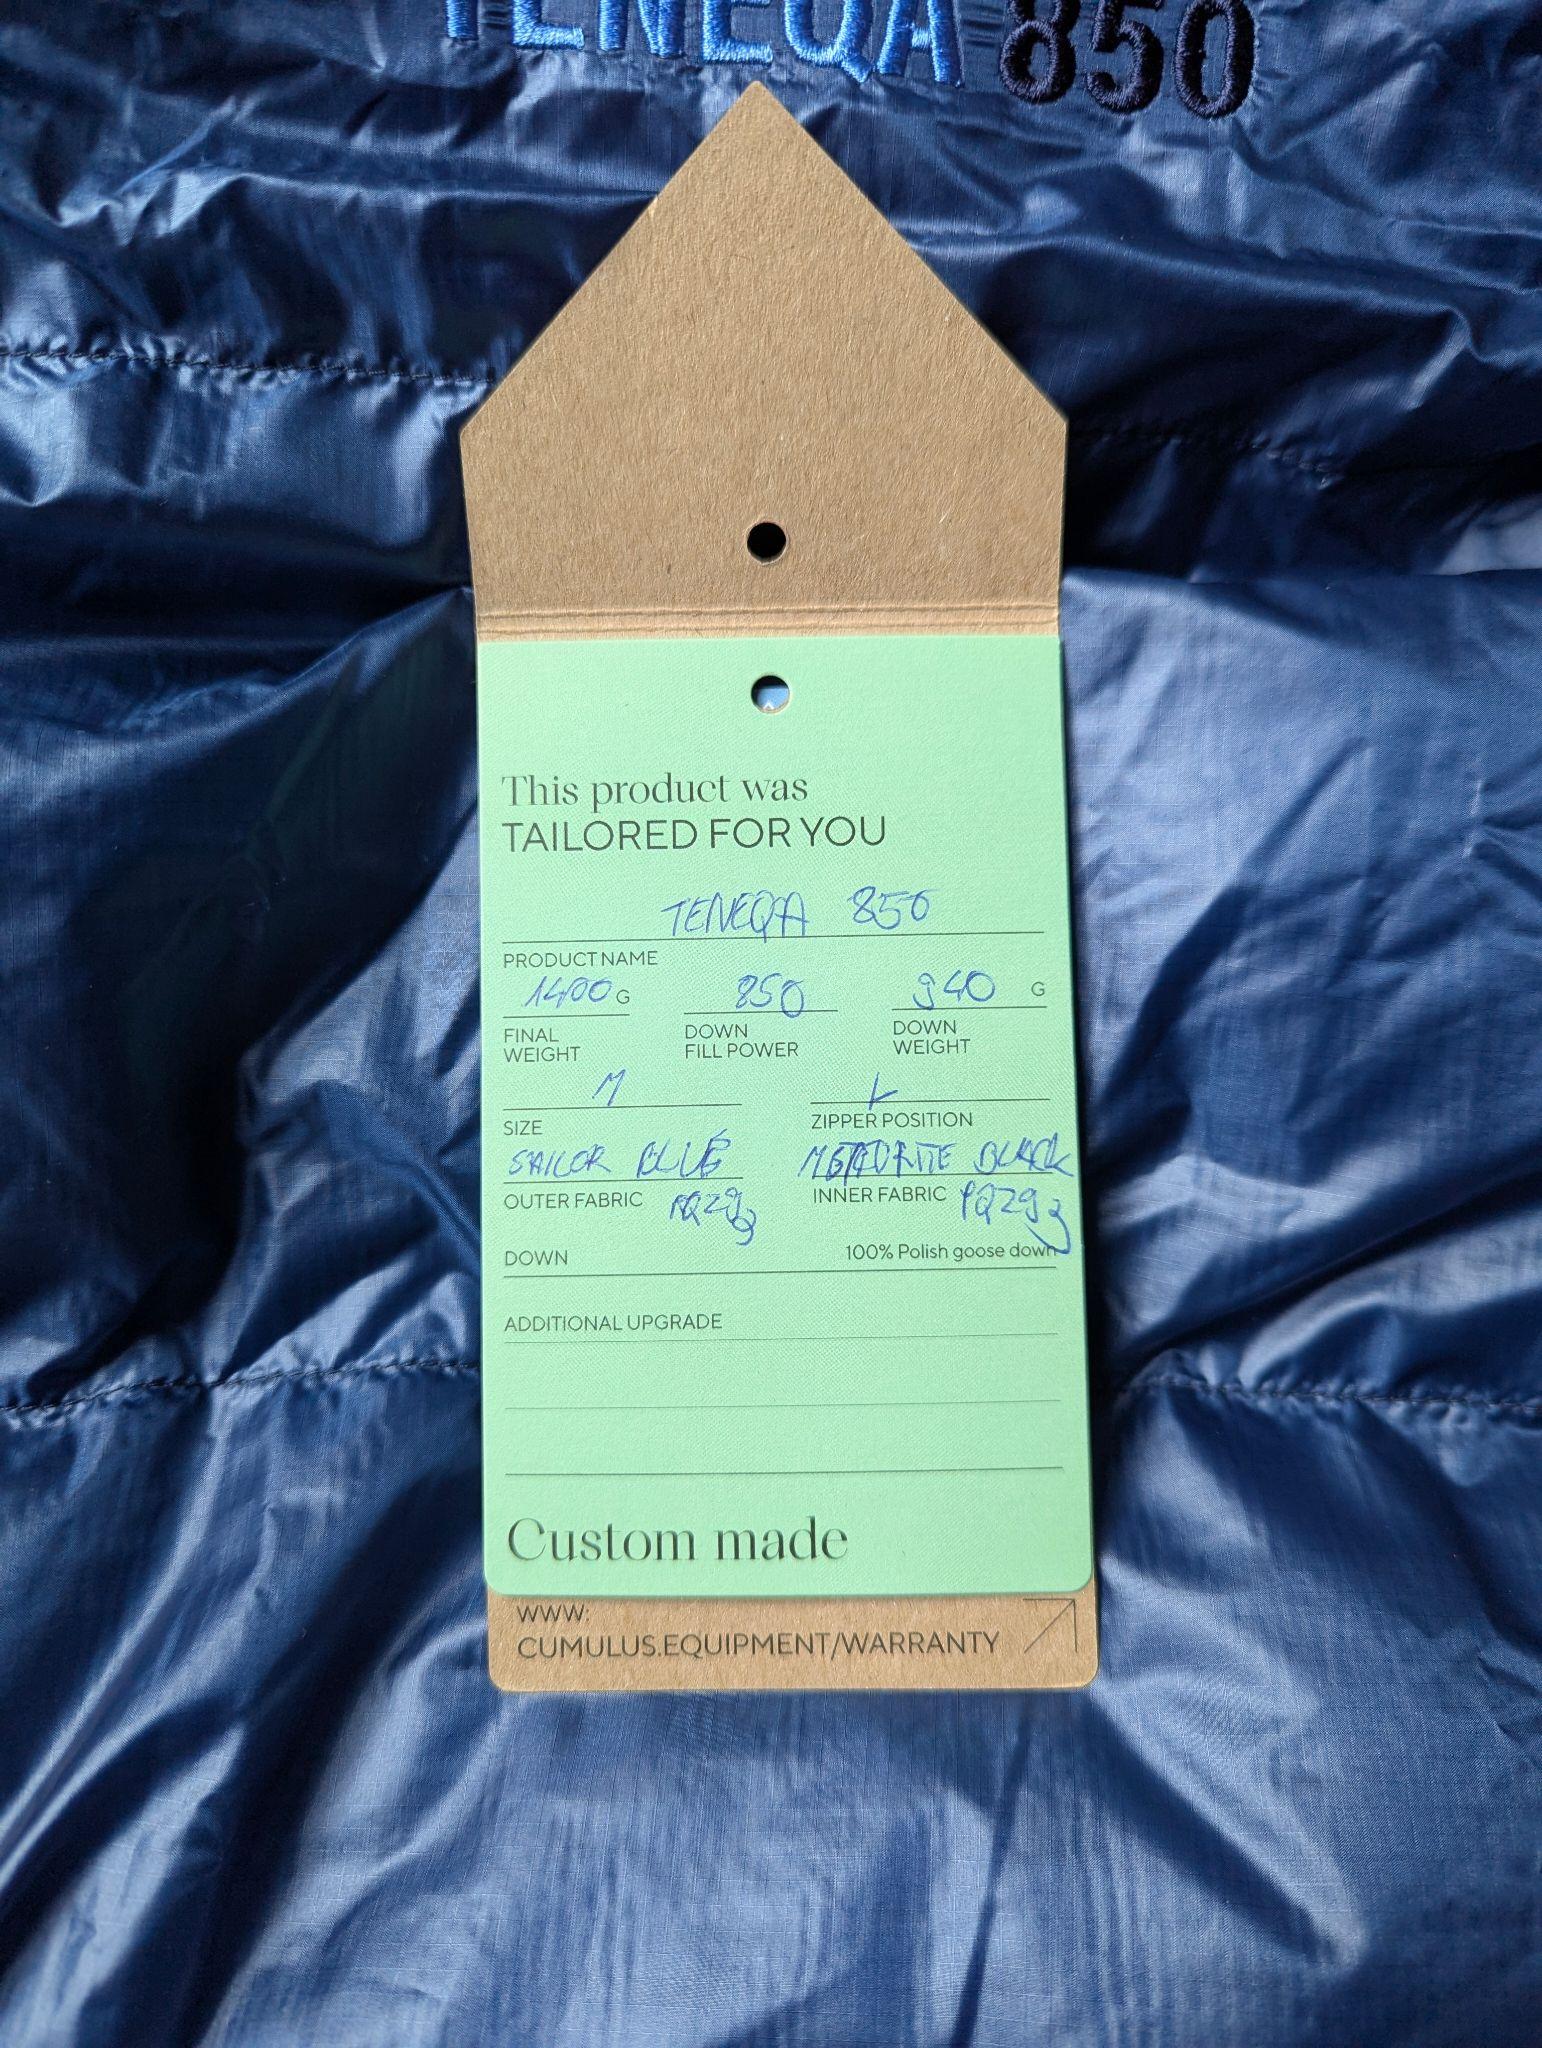 TENEQA 850
This product was
TAILORED FOR YOU
TENEQA 850
PRODUCT NAME
1400 G 850 940 G
FINAL WEIGHT DOWN FILL POWER DOWN WEIGHT
M L
SIZE ZIPPER POSITION
SAILOR BLUE METEORITE BLACK
OUTER FABRIC PQ29g INNER FABRIC PQ29g
DOWN 100% Polish goose down
ADDITIONAL UPGRADE
Custom made
WWW:
CUMULUS.EQUIPMENT/WARRANTY